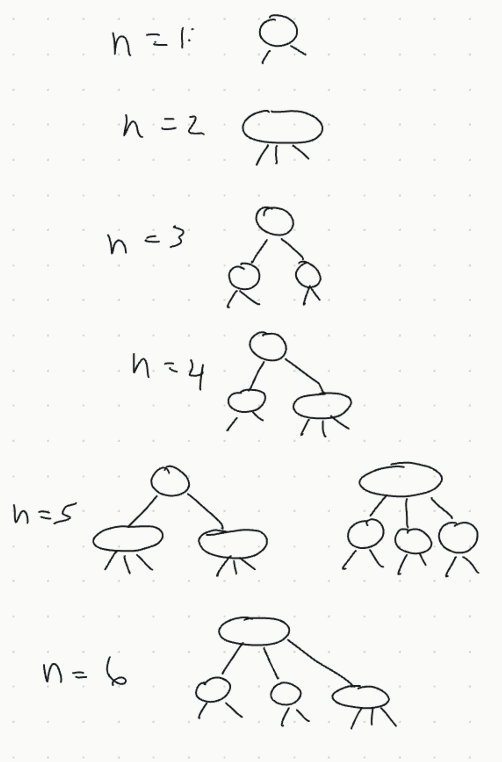 n = 1:
n = 2
n = 3
n = 4
n = 5
n = 6